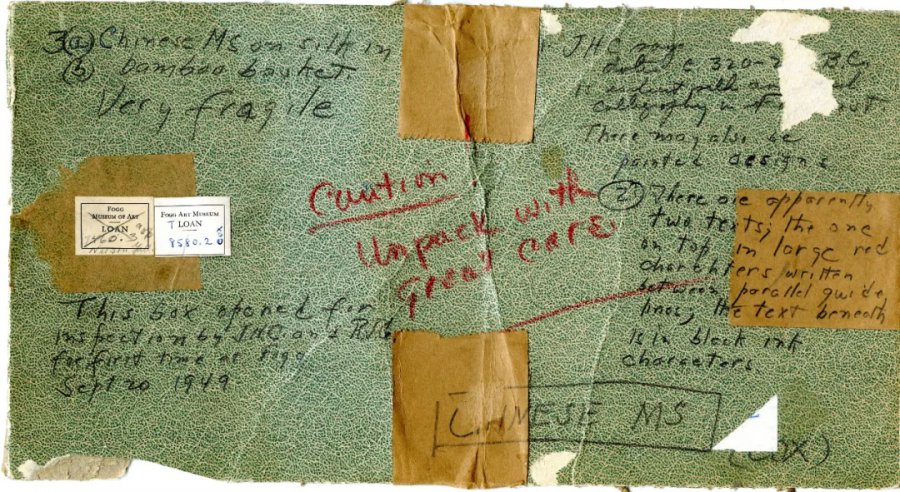 3(a) Chinese MS on silk in
(b) bamboo basket
Very fragile
FOGG
MUSEUM OF ART
LOAN
FOGG ART MUSEUM
T LOAN
8580.2
This box opened for
inspection by JHC and
for first time at Fogg
Sept 20 1949
Caution!
Unpack with
great care
JHC says
date c 320-2 B.C.
calligraphy
There may also be
painted designs
(2) There are apparently
two texts; the one
on top in large red
characters written
between parallel guide
lines; the text beneath
is in black ink
characters
CHINESE MS
(COX)